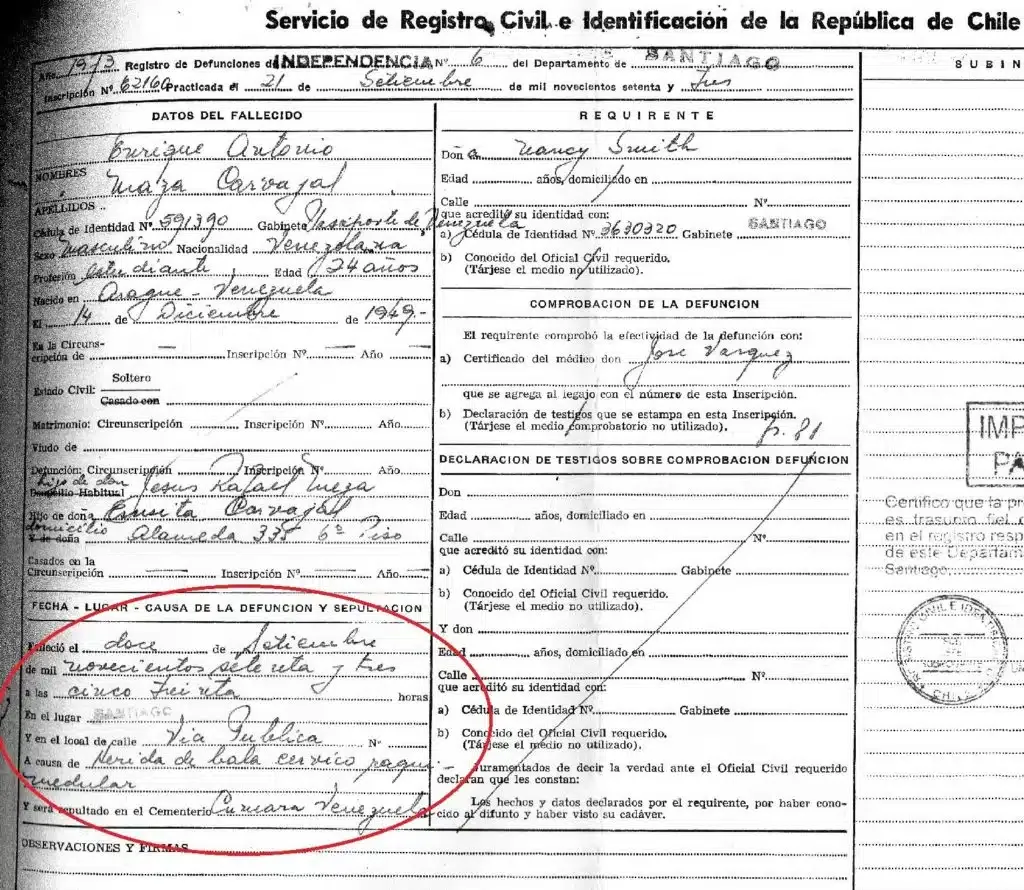 Servicio de Registro Civil e Identificación de la República de Chile
Año 1973 Registro de Defunciones de INDEPENDENCIA Nº 6 del Departamento de SANTIAGO
Inscripción Nº Practicada el 21 de Setiembre de mil novecientos setenta y tres
DATOS DEL FALLECIDO
Enrique Antonio
NOMBRES
Maza Carvajal
APELLIDOS
Cédula de Identidad Nº 591390 Gabinete Pasaporte de Venezuela
Sexo masculino Nacionalidad Venezolana
Profesión estudiante Edad 24 años
Nacido en Aragua - Venezuela
El 14 de Diciembre de 1949.-
En la Circuns-
cripción de — Inscripción Nº — Año —
Soltero
Estado Civil:
Casado con
Matrimonio: Circunscripción Inscripción Nº Año
Viudo de
Defunción: Circunscripción Inscripción Nº Año
hijo de don Jesus Rafael Meza
Domicilio Habitual
Hijo de doña Carvajal
domicilio Alameda 335 6º Piso
Y de doña
Casados en la
Circunscripción — Inscripción Nº — Año
FECHA - LUGAR - CAUSA DE LA DEFUNCION Y SEPULTACION
Falleció el doce de Setiembre
de mil novecientos setenta y tres
a las cinco treinta horas
En el lugar SANTIAGO
Y en el local de calle Via Publica Nº
A causa de herida de bala cervico raqui-
medular
Y será sepultado en el Cementerio Cumana Venezuela
OBSERVACIONES Y FIRMAS
REQUIRENTE
Don a Nancy Smith
Edad años, domiciliado en
Calle Nº
que acreditó su identidad con:
a) Cédula de Identidad Nº 3630320 Gabinete SANTIAGO
b) Conocido del Oficial Civil requerido.
(Tárjese el medio no utilizado).
COMPROBACION DE LA DEFUNCION
El requirente comprobó la efectividad de la defunción con:
a) Certificado del médico don Jose Vasquez
que se agrega al legajo con el número de esta Inscripción.
b) Declaración de testigos que se estampa en esta Inscripción.
(Tárjese el medio comprobatorio no utilizado).
DECLARACION DE TESTIGOS SOBRE COMPROBACION DEFUNCION
Don
Edad años, domiciliado en
Calle Nº
que acreditó su identidad con:
a) Cédula de Identidad Nº Gabinete
b) Conocido del Oficial Civil requerido.
(Tárjese el medio no utilizado).
Y don
Edad años, domiciliado en
Calle Nº
que acreditó su identidad con:
a) Cédula de Identidad Nº Gabinete
b) Conocido del Oficial Civil requerido.
(Tárjese el medio no utilizado).
Juramentados de decir la verdad ante el Oficial Civil requerido
declaran que les constan:
Los hechos y datos declarados por el requirente, por haber cono-
cido al difunto y haber visto su cadáver.
SUBIN
IMP
PA
Certifico que la pr
es trasunto fiel
en el registro resp
de este Departam
Santiago,